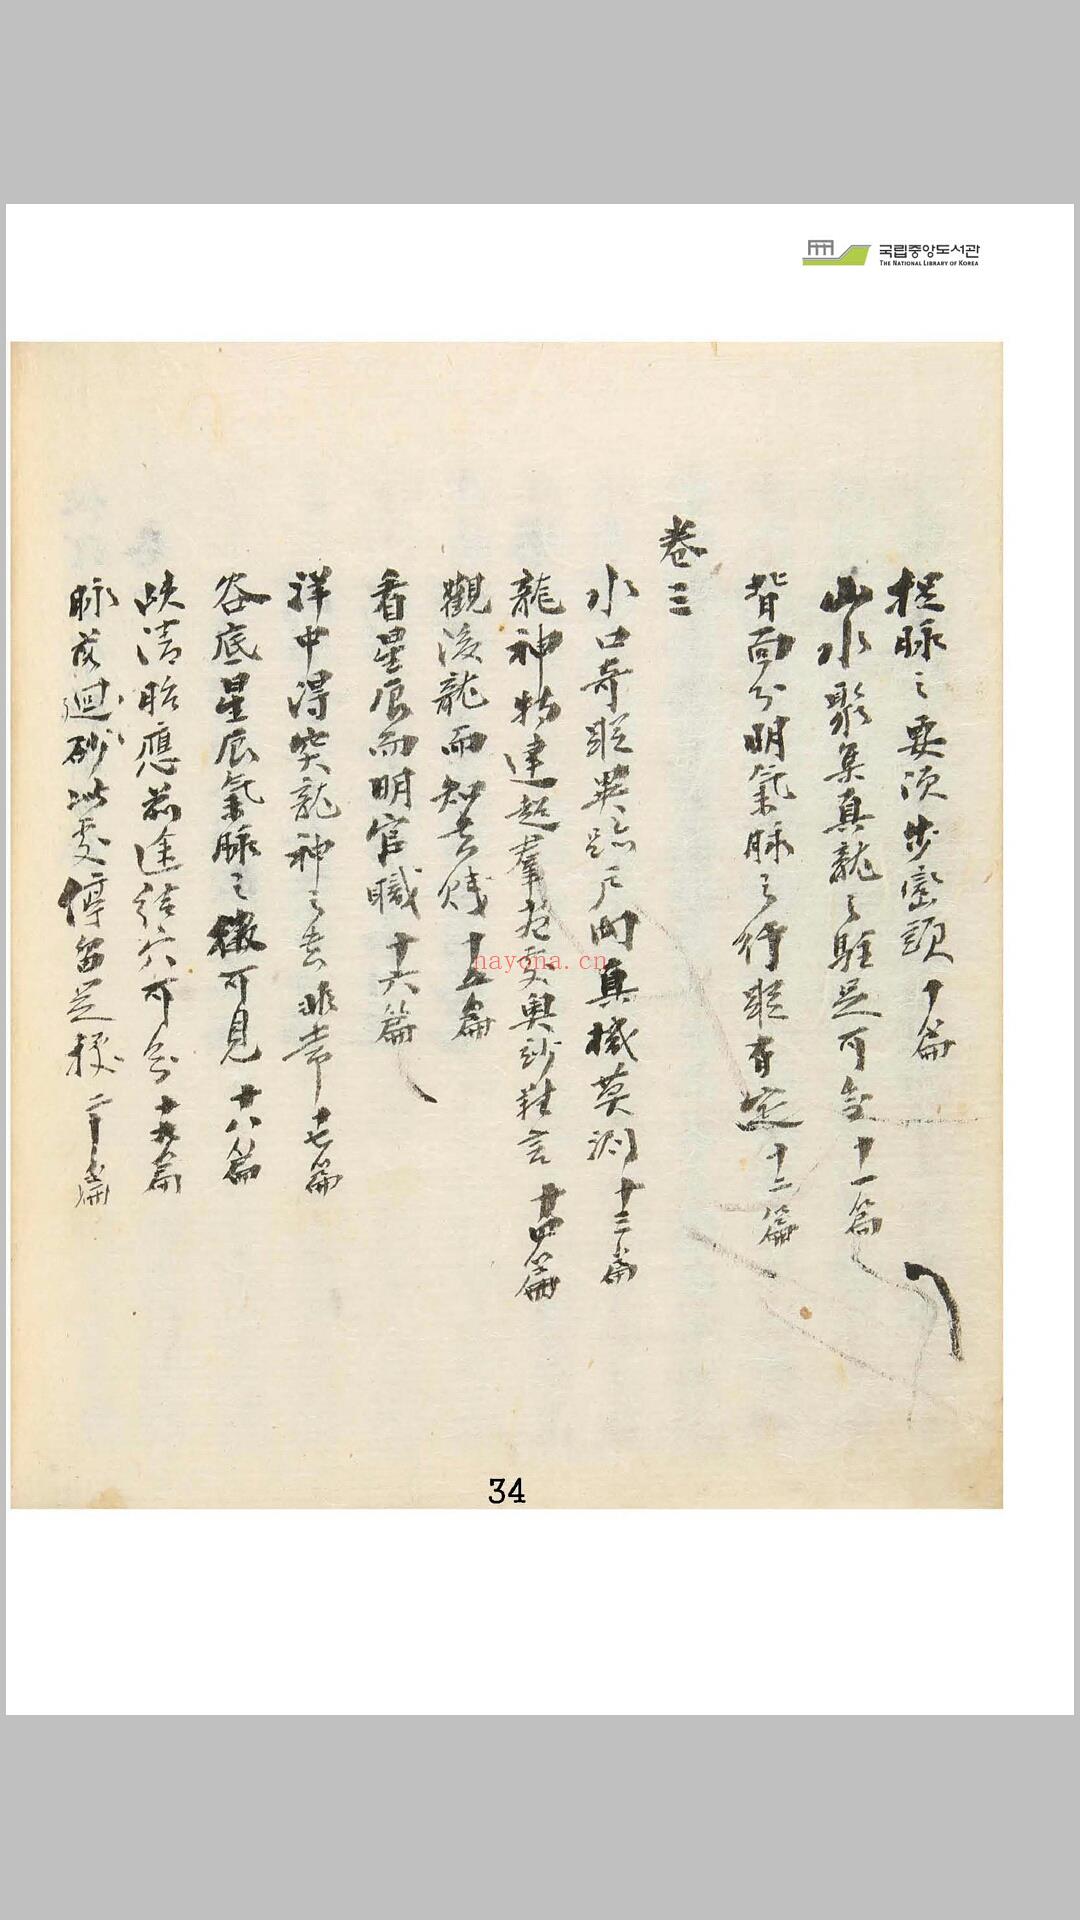 국립중앙도서관
THE NATIONAL LIBRARY OF KOREA
脉之要須步巒頭十篇
山水聚集真龍之駐足可知十一篇
背面分明氣脉之行蹤有定十二篇
卷三
水口奇蹤異跡戶門真機莫測十三篇
龍神特達超羣奧妙難言十四篇
觀後龍而知貴賤十五篇
看星辰而明官職十六篇
洋中得突龍神之貴非常十七篇
谷底星辰氣脉之徵可見十八篇
峽清應前途結穴可知十九篇
脉落迴砂此處停留足據二十篇
nayona.cn
34